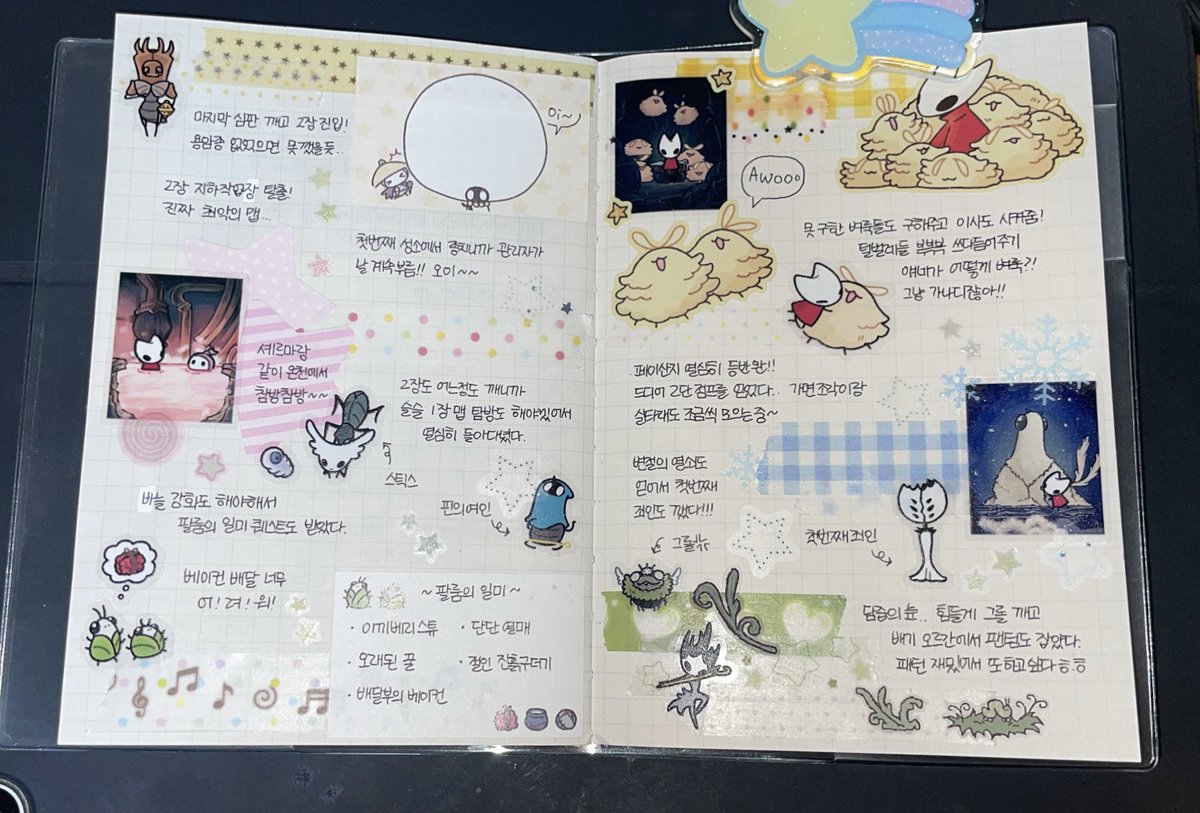 마지막 심판 깨고 2장 진입!
용암종 없었으면 못깼을듯..
2장 지하작업장 탈출!
진짜 최악의 맵...
Oi~
첫번째 성소에서 종치니까 관리자가
날 계속부름!! 오이~~
셰르마랑
같이 온천에서
참방참방~~
2장도 어느정도 깨니까
슬슬 1장 맵 탐방도 해야겠어서
열심히 돌아다녔다.
스틱스
바늘 강화도 해야해서
팔룸의 일미 퀘스트도 받았다.
핀의여인
베이컨 배달 너무
어! 려! 워!
~ 팔룸의 일미 ~
· 이끼베리스튜
· 단단 열매
· 오래된 꿀
· 절인 진홍구더기
· 배달부의 베이컨
Awooo
못 구한 벼룩들도 구해주고 이사도 시켜줌!
털벌레들 복복복 쓰다듬어주기
얘네가 어떻게 벼룩?!
그냥 가나디잖아!!
페이산지 열심히 등반완!!
드디어 2단 점프를 얻었다.. 가면조각이랑
실타래도 조금씩 모으는 중~
변절의 열쇠도
얻어서 첫번째
죄인도 깼다!!!
첫번째죄인
그롤뉴
담즙의 늪.. 힘들게 그롤 깨고
배기 오르간에서 팬텀도 잡았다.
패턴 재밌어서 또하고싶다ㅎㅎ